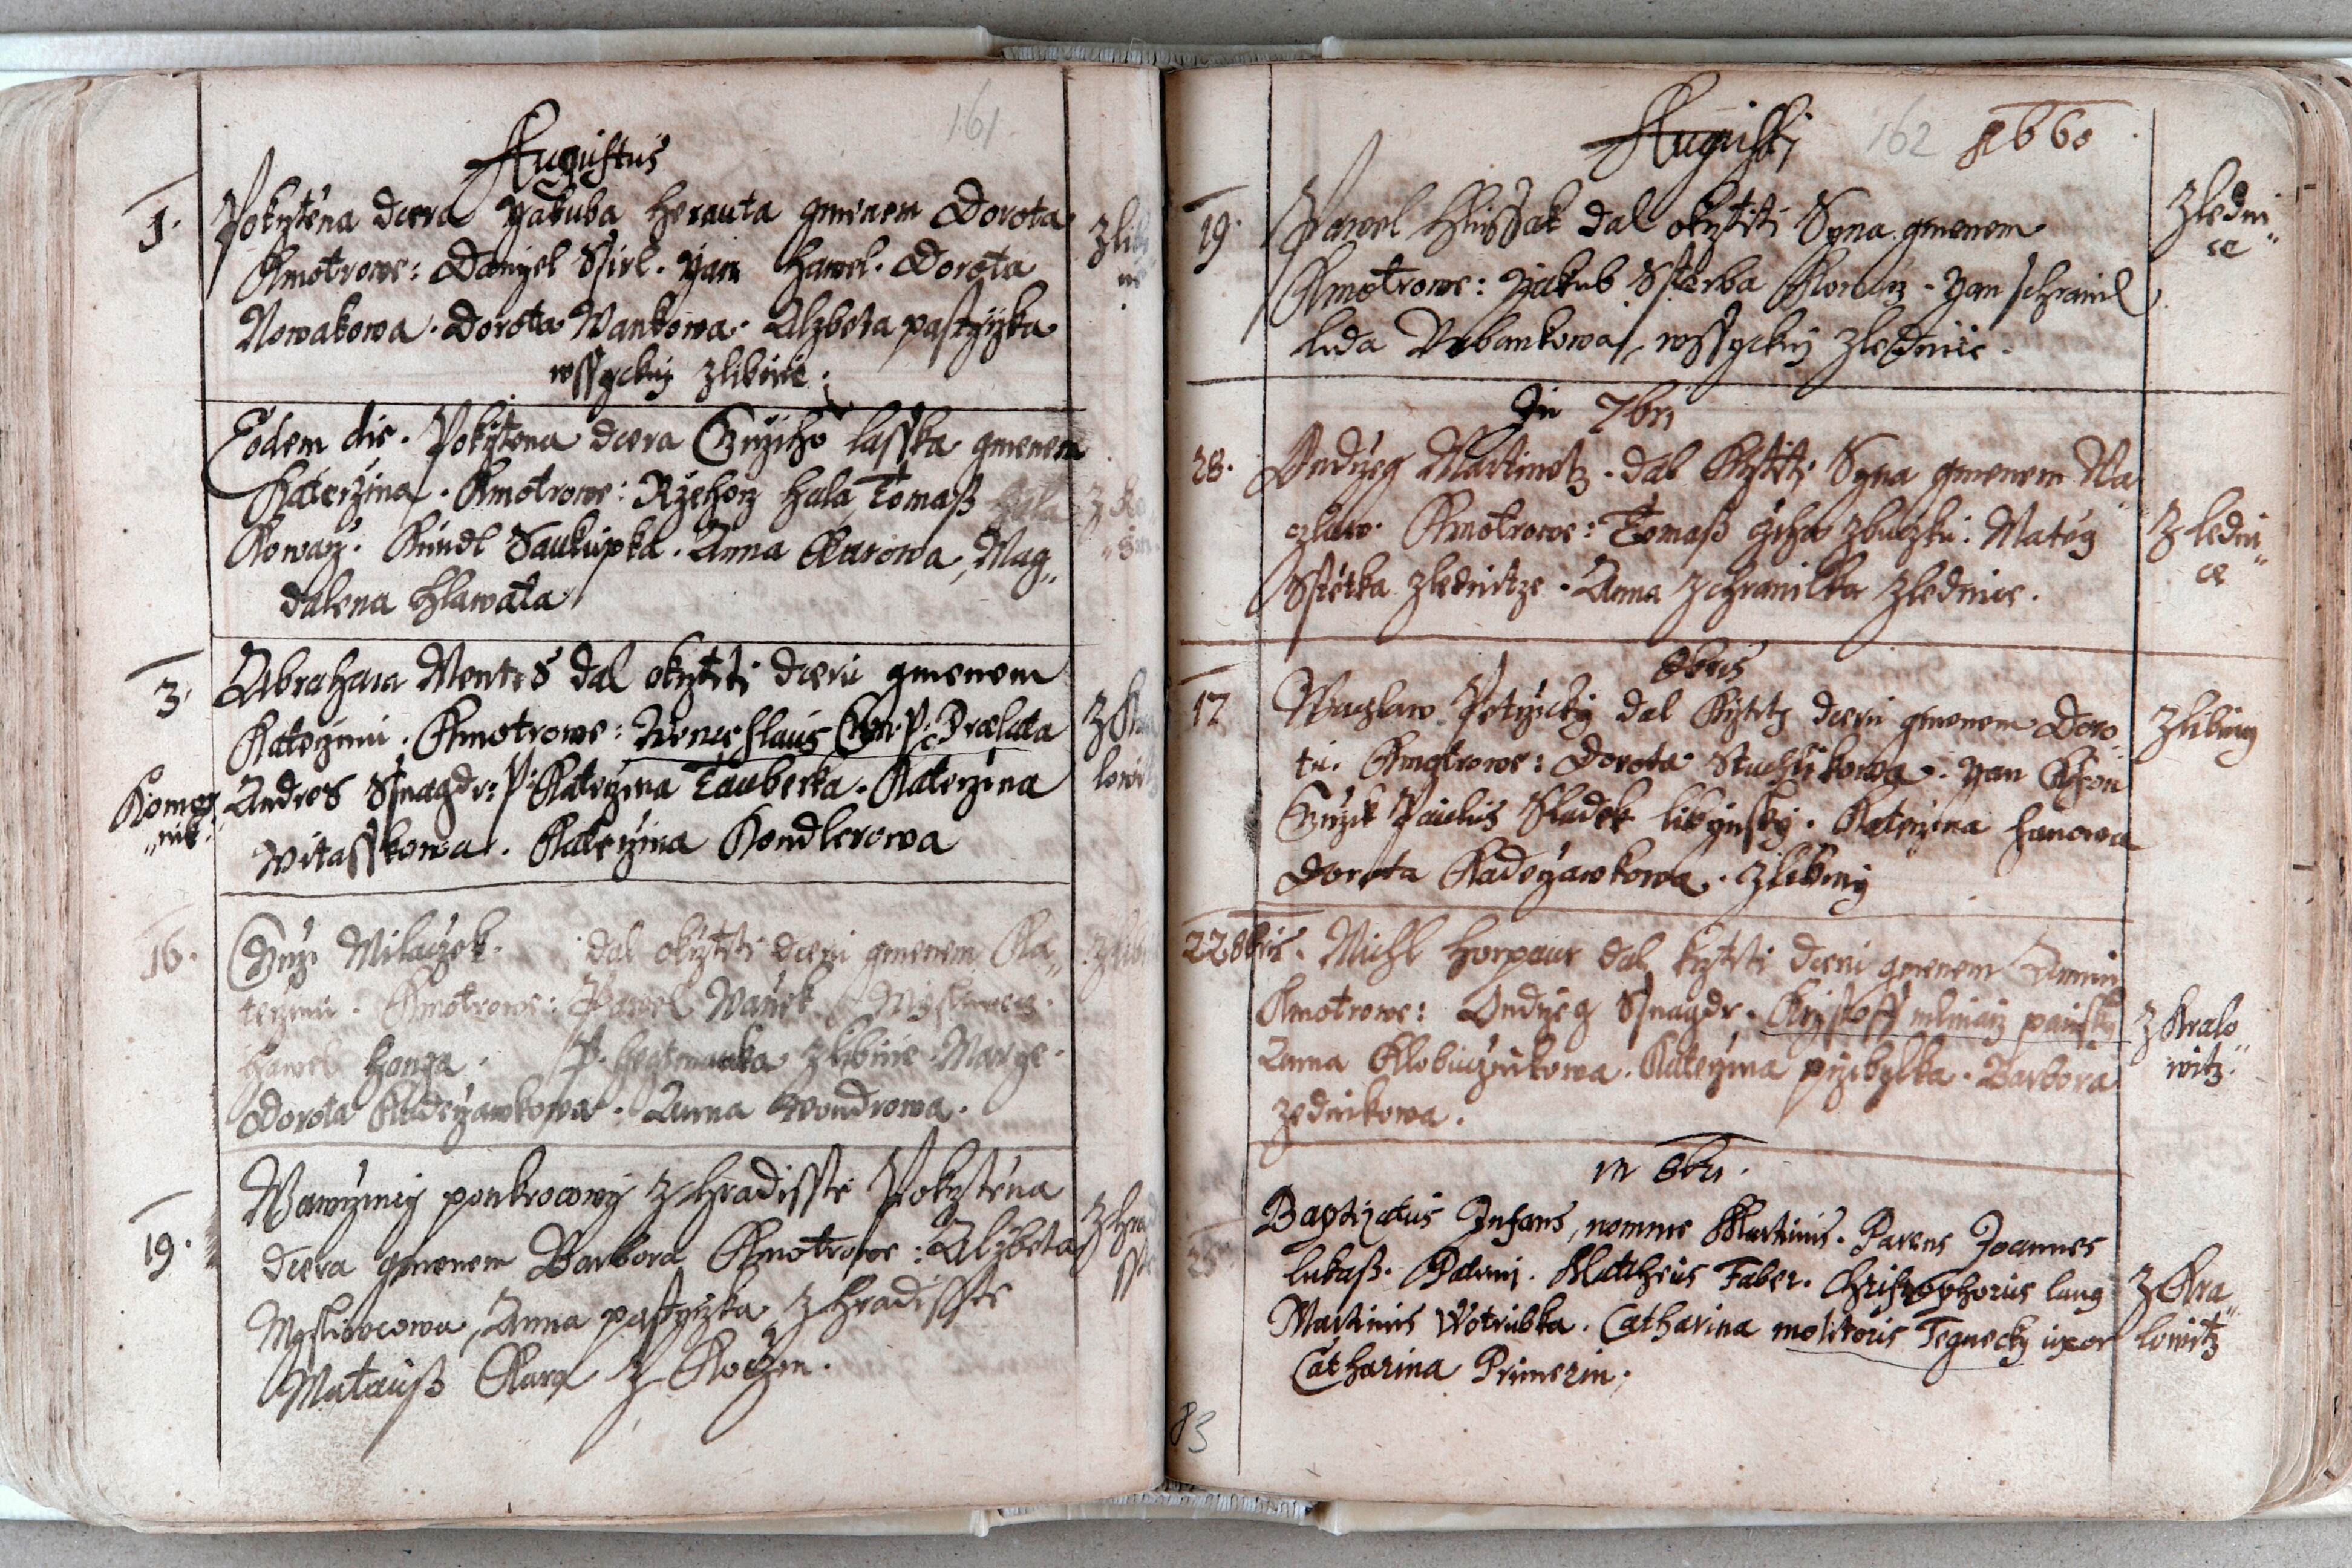 161
Augustus
1. Pokrztěna dcera Yakuba Herauta gmenem Dorota
Kmotrowe: Danyel Sfirl. Yan Hawel. Dorota
Nowakowa. Dorota Wankowa. Alzbeta pastyrzka
wssyckni z Libinie.
Eodem die. Pokrztena dcera Girziho Lasska gmenem
Katerzina. Kmotrowe: Rzehorz Hala, Tomaß
Kowarz. Kundl Saukupka. Anna Karowa, Mag„
dalena Hlawata
3. Abraham Mentes dal okrztiti dceru gmenem
Katerzinu. Kmotrowe: Wenceslaus P: Prælata
Komor„
„nik.
Andres Ssnagdr: P: Katerzina Tauberka. Katerzina
Witasskowa. Katerzina Kondlerowa
16. Girzi Milaczek. dal okrztiti dceru gmenem Ka„
terzinu. Kmotrowe: Pawel Wanek
Hawel Honza. P. Hegtmanka z Libinie.
Dorota Kaderzawkowa. Anna Wondrowa.
19. Wawrzinecz ponkrocowy z Hradisste Pokrztena
dcera gmenem Barbora Kmotrowe: Alzbeta
Mysliwcowa, Anna pastyrzka z Hradisste
Matauß Karq z Koczin.
Augusti 162 1660
19. Pawel Hussak dal okrztiti Syna gmenem
Kmotrowe: Yakub Ssterba Kowarz. Yan schramil
Lida Urbankowa, wssycknj z Lednice.
z Ledni
ce„
In 7bri
28. Ondrzeg Martinetz. dal Krztiti Syna gmenem Wa
czlaw. Kmotrowe: Tomaß Cziha z Buczku. Matieg
Sstětka z Lednitze. Anna z chramilka z Lednice.
z Ledni„
ce
8bris
17 Waczlaw Petrziczky dal Krztitj dceru gmenem Doro„
tu. Kmotrowe: Dorota Stuchlikowa. Yan
Girzik Paulus Sladek libynsky. Katerzina Hanowa
Dorota Kaderzawkowa. z Libiny
z Libiny
22 8bris. Michl Horpaur dal krztiti dceru gmenem Annu
Kmotrowe: Ondrzeg Ssnagdr. Krystoff mlinarz pansky
Anna Klobucznikowa. Katerzina przibylka. Barbora
zednikowa.
z Kralo„
witz.
in 8bri.
25 Baptizatus Infans, nomine Martinus. Parens Joannes
Lukaß. Patrini. Mattheus Faber. Christophorus Lang
Martinus Wotrubka. Catharina molitoris Tegnecky uxor
Catharina Primerin.
z Kra„
lowitz
83